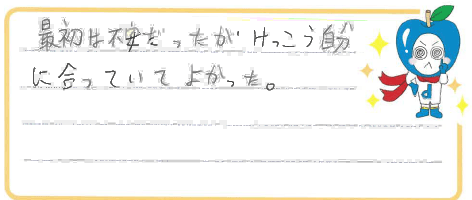 最初は不安だったが けっこう自分
に合っていて よかった。
d